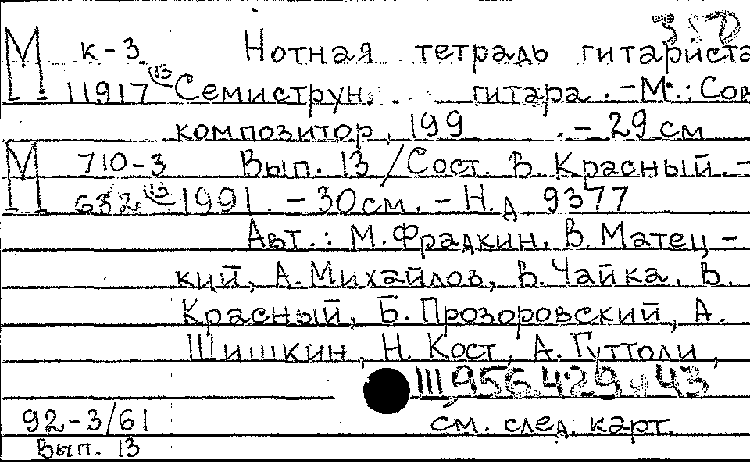 М к-3 Нотная тетрадь гитариста
11917 13 Семиструн. гитара. - М.: Сов
композитор, 199 . - 29 см
М 710-3 Вып. 13 / Сост. В. Красный. -
632 13 1991. - 30 см. - Н.д 9377
Авт.: М. Фрадкин, В. Матец -
кий, А. Михайлов, В. Чайка, В.
Красный, Б. Прозоровский, А.
Шишкин, Н. Кост, А. Гуттоли,
92-3/61 см. след. карт.
Вып. 13